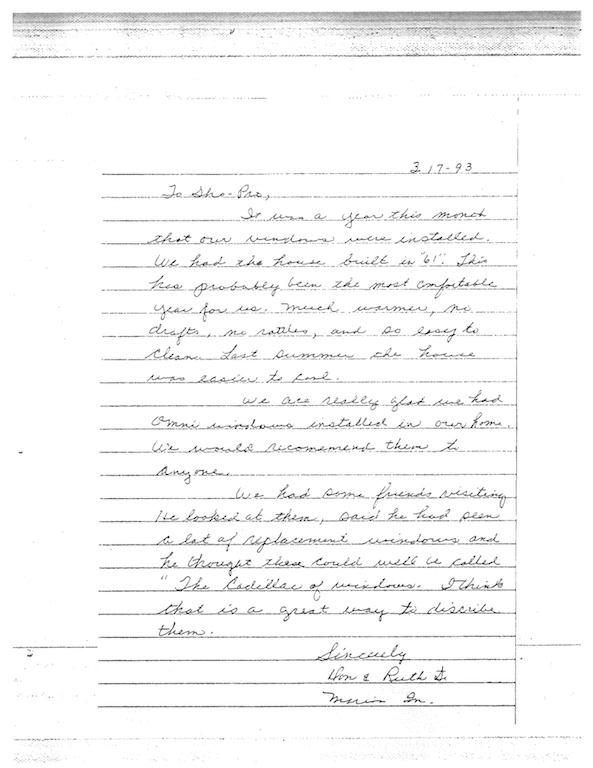 3-17-93
To Sho-Pro,
It was a year this month
that our windows were installed.
We had the house built in '61'. This
has probably been the most comfortable
year for us. Much warmer, no
drafts, no rattles, and so easy to
clean. Last summer the house
was easier to cool.
We are really glad we had
Omni windows installed in our home.
We would recomemend them to
anyone.
We had some friends visiting
He looked at them, said he had seen
a lot of replacement windows and
he thought these could well be called
"The Cadillac of windows. I think
that is a great way to discribe
them.
Sincerely
Don & Ruth
Marion In.